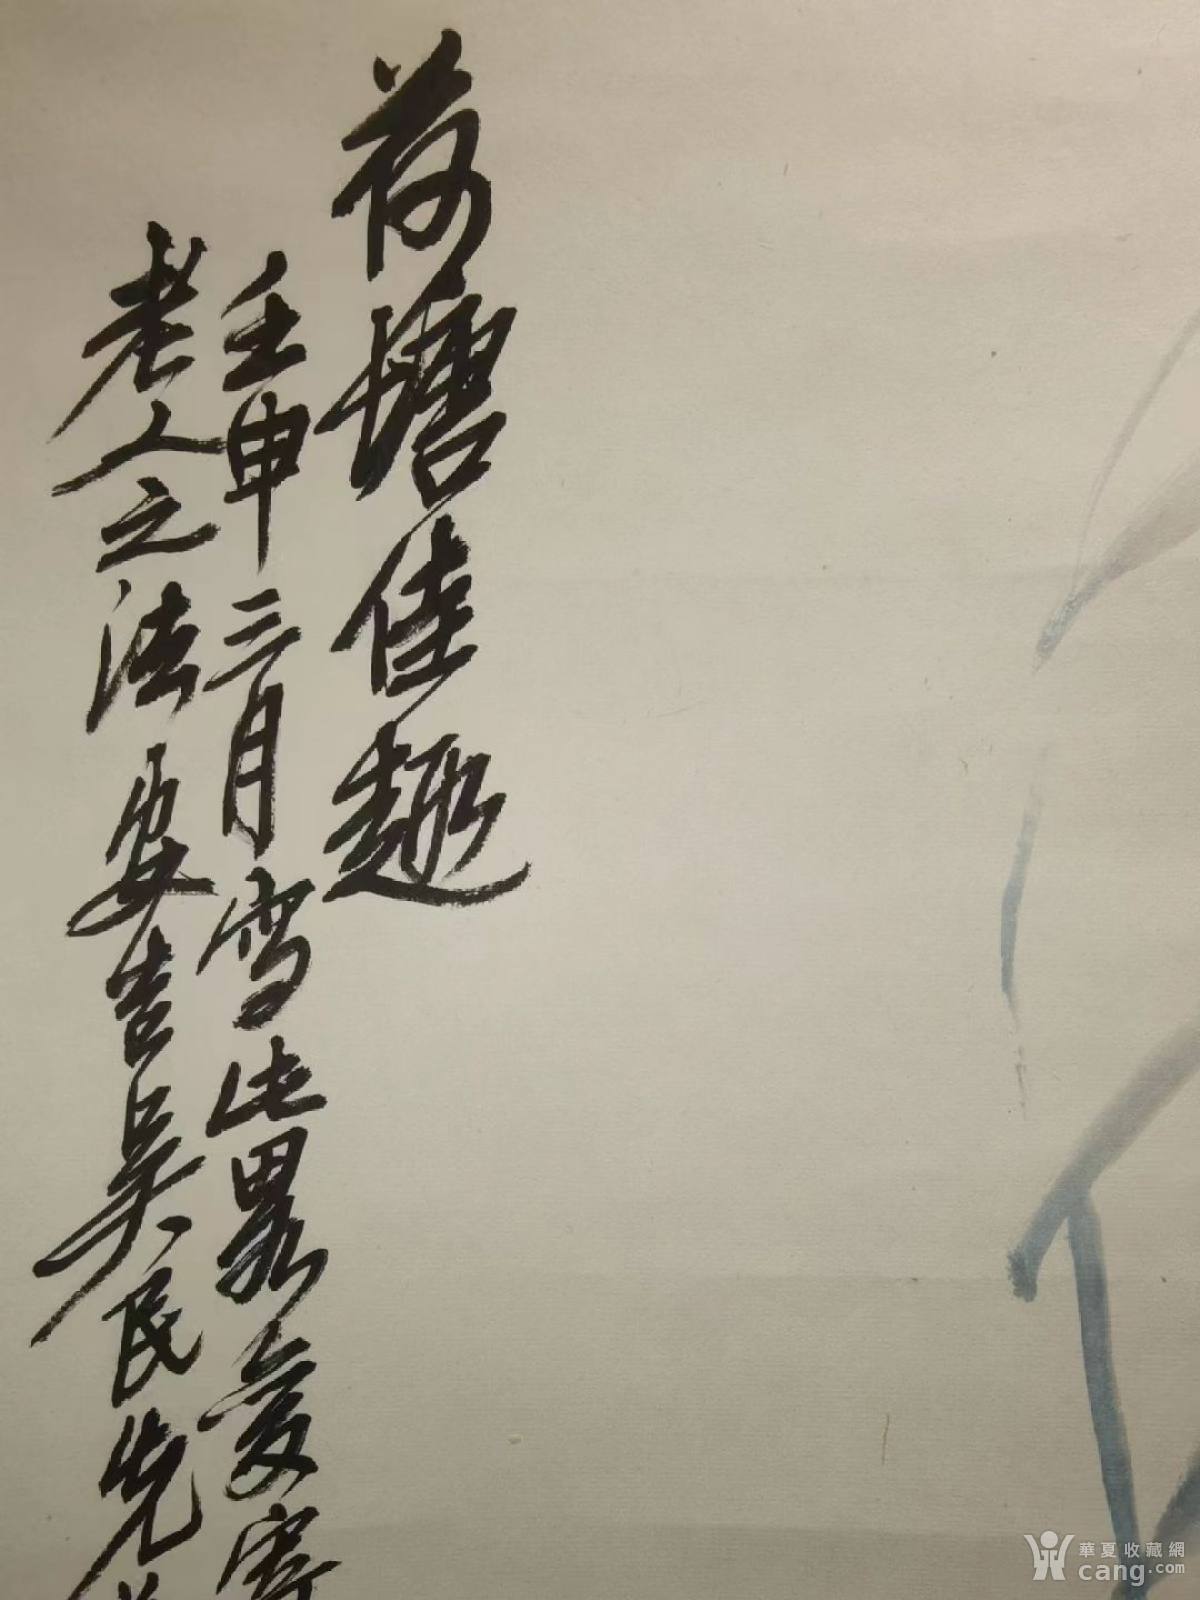 荷塘佳趣
壬申三月写此略变
老人之法安吉吴民先
華夏收藏網
cang.com